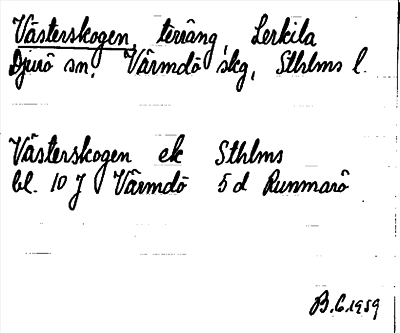 Västerskogen, terräng, Lerkila
Djurö sn, Värmdö skg, Sthlms l.
Västerskogen ek Sthlms
bl. 10 J Värmdö 5 d Runmarö
B.G. 1959